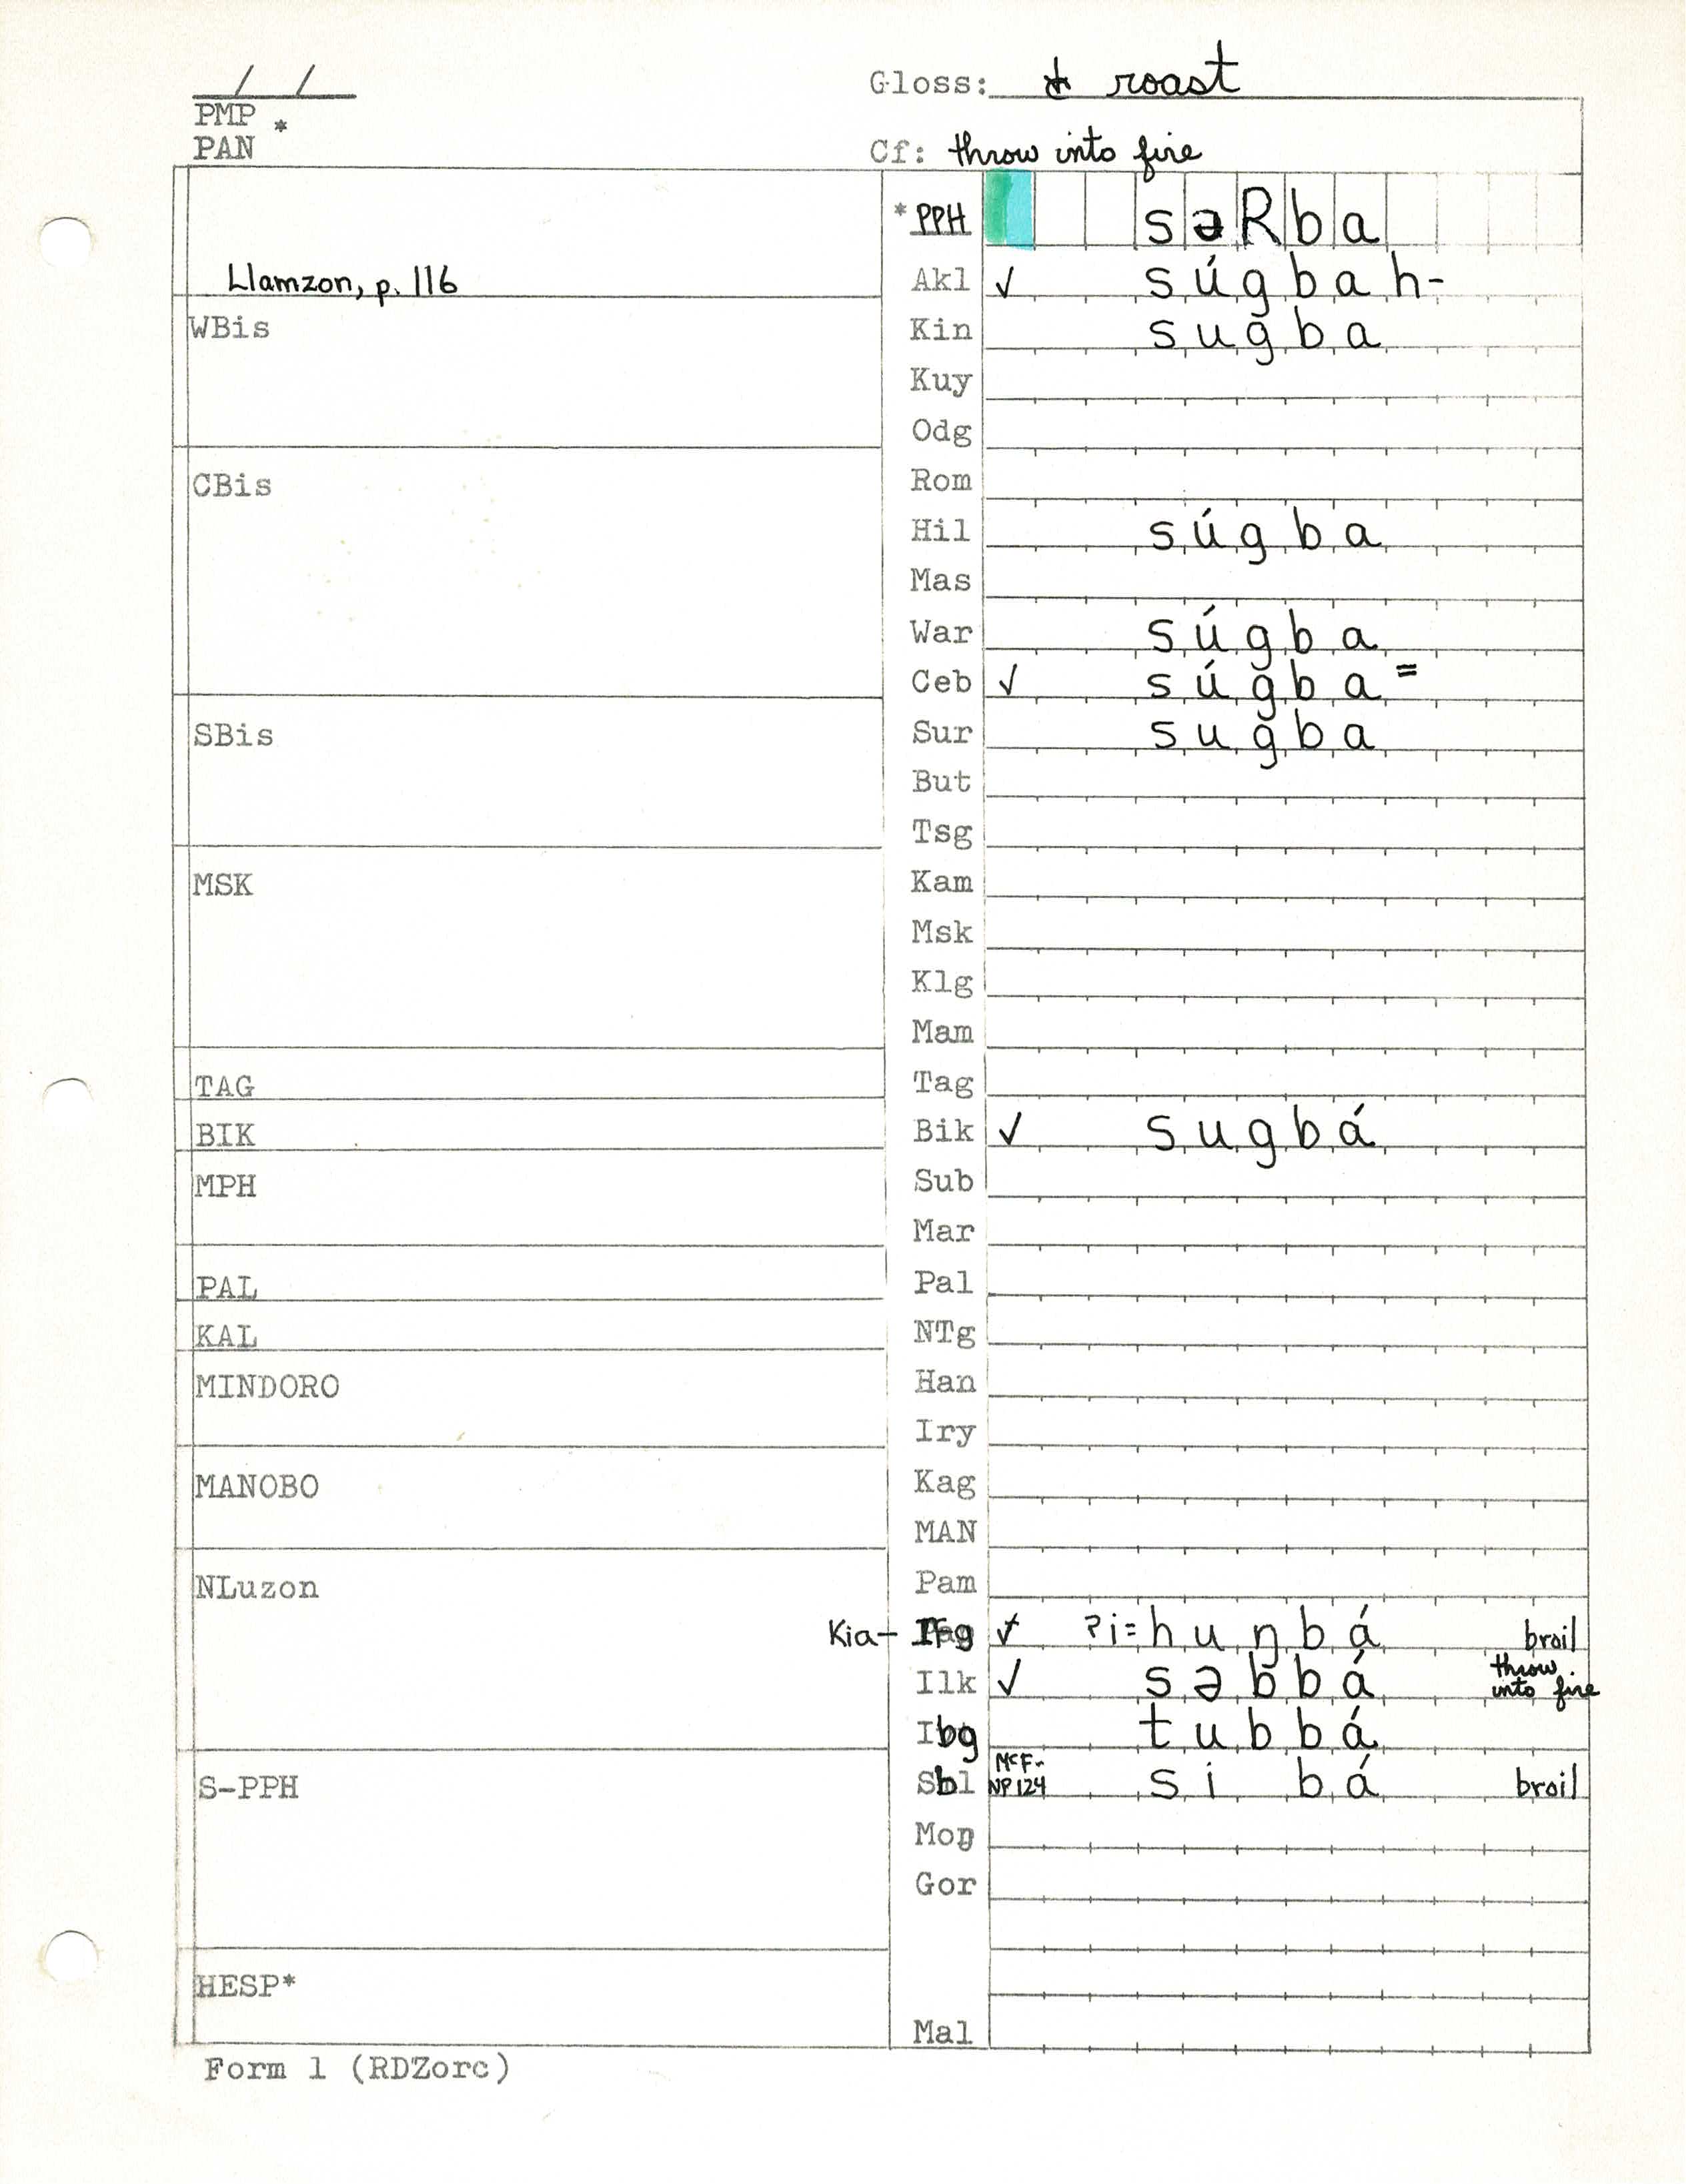 Gloss: roast
PMP *
PAN
Cf: throw into fire
* PPH səRba
Llamzon, p. 116
Akl ✓ súgbah-
WBis
Kin sugba
Kuy
Odg
CBis
Rom
Hil súgba
Mas
War súgba
Ceb ✓ súgba =
SBis
Sur sugba
But
Tsg
MSK
Kam
Msk
Klg
Mam
TAG
Tag
BIK
Bik ✓ sugbá
MPH
Sub
Mar
PAL
Pal
KAL
NTg
MINDORO
Han
Iry
MANOBO
Kag
MAN
NLuzon
Pam
Kia- ✓ ʔi=huŋbá broil
Ilk ✓ səbbá throw into fire
Ibg tubbá
S-PPH
Sbl McF- NP124 si bá broil
Moŋ
Gor
HESP*
Mal
Form 1 (RDZorc)